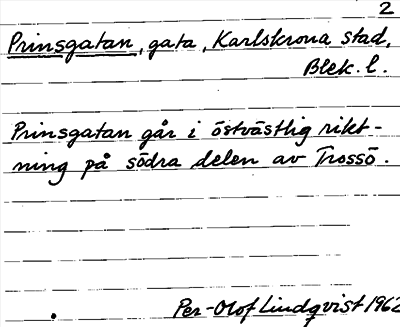 2
Prinsgatan, gata, Karlskrona stad,
Blek. l.
Prinsgatan går i östvästlig rikt-
ning på södra delen av Trossö.
Per-Olof Lindqvist 1962